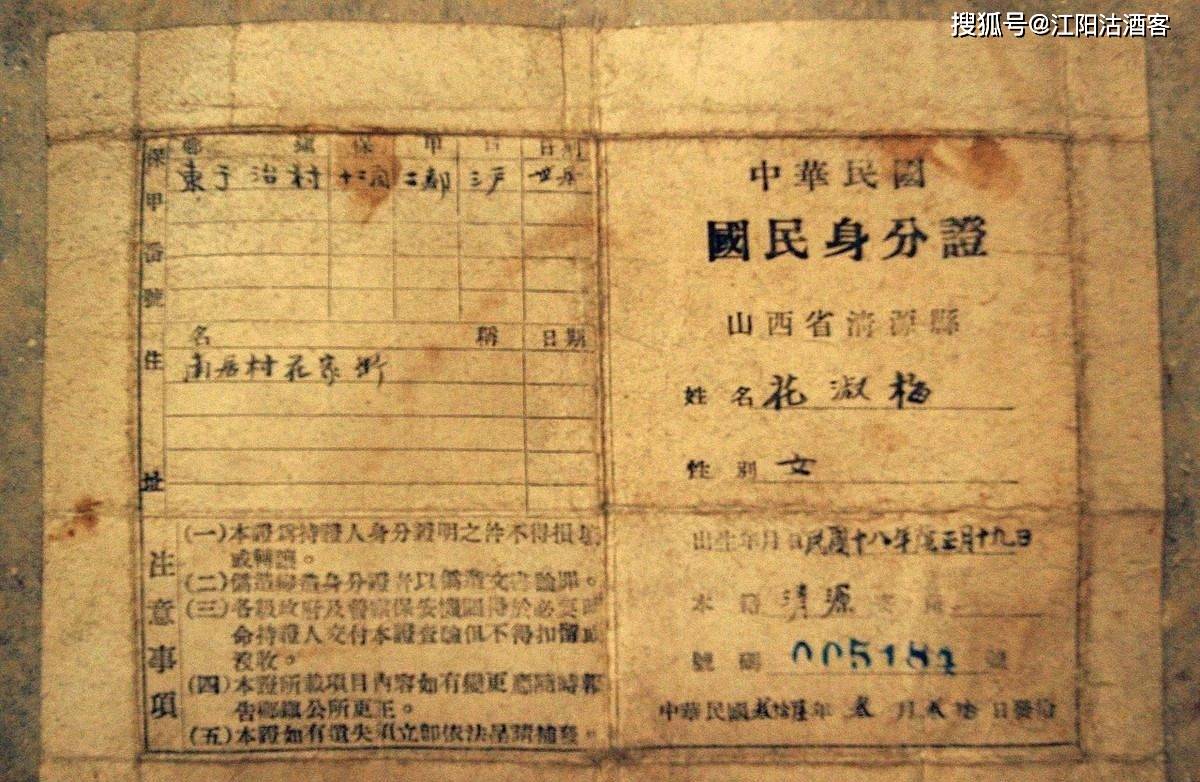 搜狐号@江阳沽酒客
中華民國
國民身分證
山西省清源縣
姓名 花淑梅
性別 女
出生年月日 民國十八年 正月十九日
本籍 清源
號碼 00518 號
中華民國 年 月 日發給
保甲番號
鄉鎮 保 甲 戶 日期
東于治村 十二閭 二鄰 三戶
住址
名稱 日期
南居村花家街
注意事項
(一)本證為持證人身分證明之件不得損壞
或轉讓。
(二)偽造變造身分證者以偽造文書論罪。
(三)各級政府及警察保安機關得於必要時
命持證人交付本證查驗但不得扣留或
沒收。
(四)本證所載項目內容如有變更應隨時報
告鄉鎮公所更正。
(五)本證如有遺失須立即依法呈請補發。